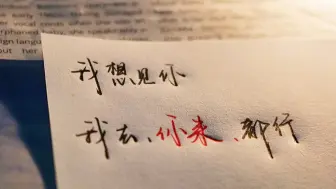 我想见你
我去、你来、都行